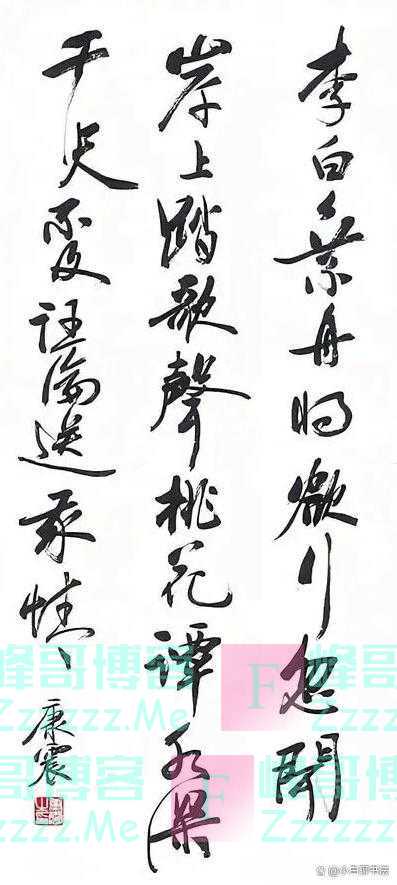 李白乘舟将欲行忽聞
岸上踏歌聲桃花潭水深
千尺不及汪倫送我情、
康震
峰哥博客
Zzzzz.Me
F
峰哥博客
Zzzzz.Me
F